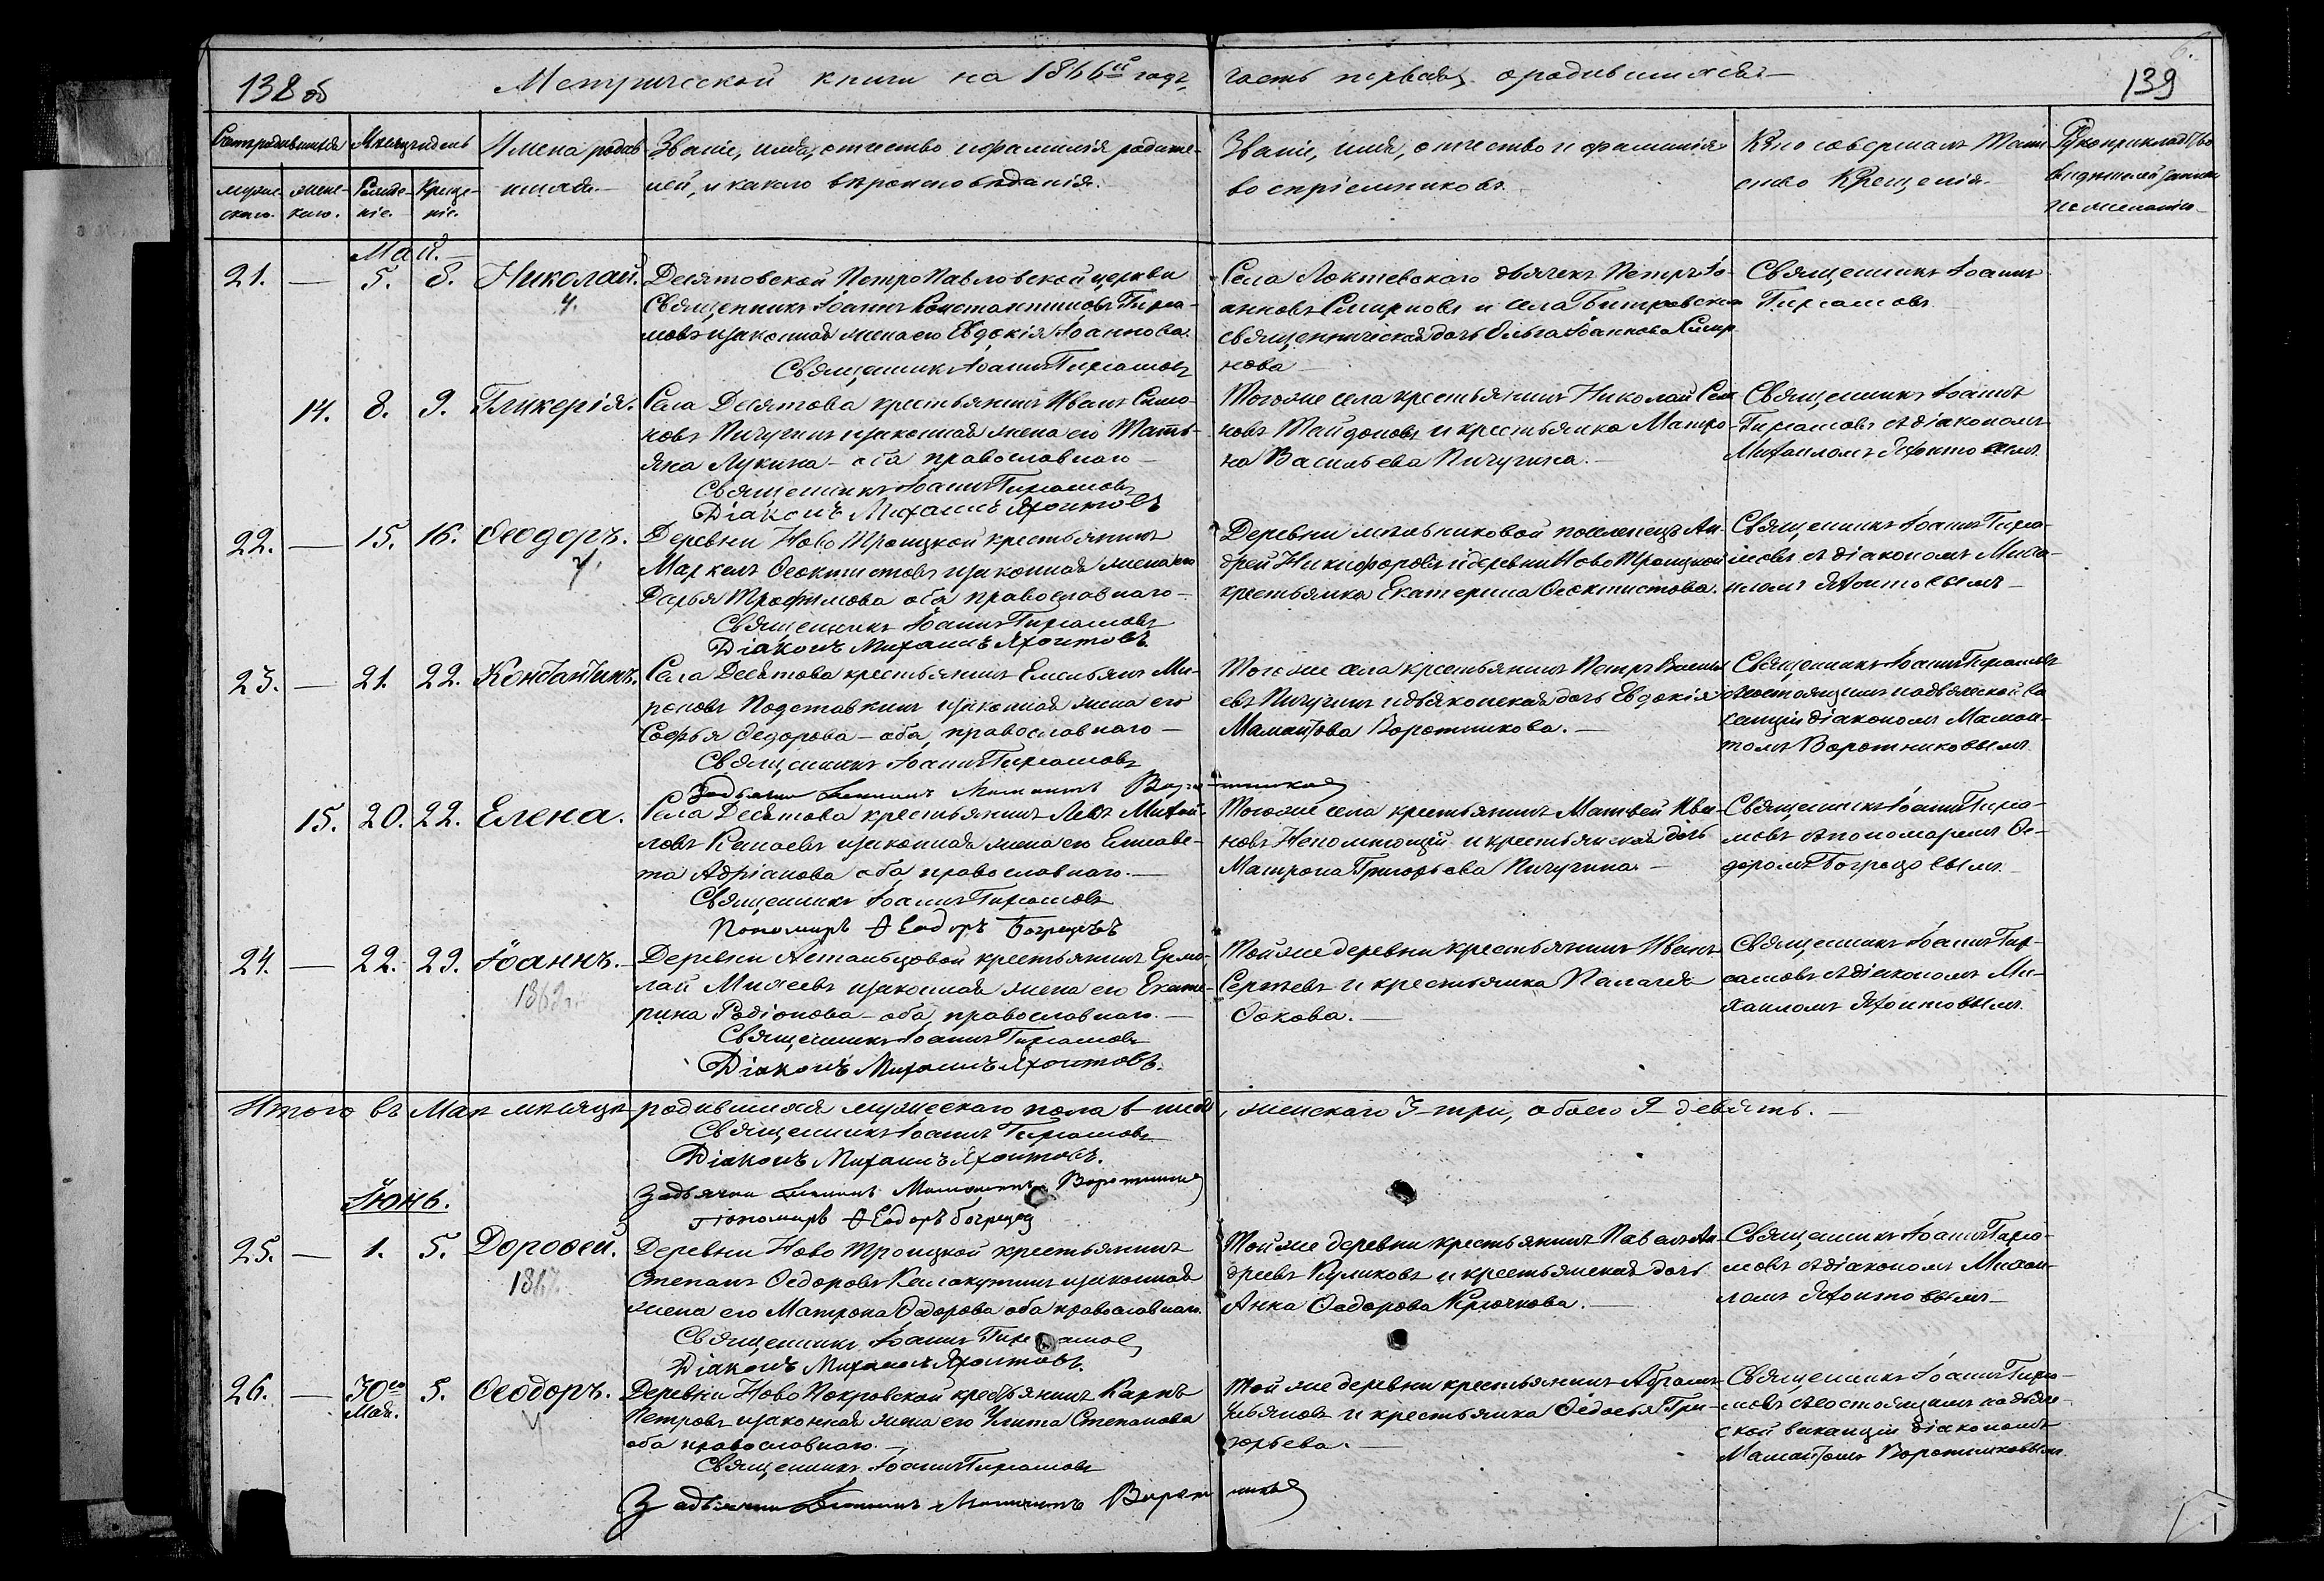 138 об
Метрической книги на 1866й годъ, часть первая, о родившихся
139
Счетъ родившихся
Мѣсяцъ и день
Имена родившихся.
Званіе, имя, отчество и фамилія родите-
лей, и какого вѣроисповѣданія.
Званіе, имя, отчество и фамилія
воспріемниковъ.
Кто совершалъ Таин
ство Крещенія.
Рукоприкладство
свидѣтелей записи
по желанію
муже-
скаго.
жен-
скаго.
Рожде-
ніе.
Креще-
ніе.
Май.
21. — 5. 8. Николай.
у.
Десятовской Петропавловской церкви
Священникъ Іоаннъ Константиновъ Гирса-
мовъ и законная жена его Евдокія Іоаннова.
Священникъ Іоаннъ Гирсамовъ
Села Локтевскаго дьячекъ Петръ Іо-
анновъ Смирновъ и села
священническая дочь Ольга Іоаннова Смир-
нова
Священникъ Іоаннъ
Гирсамовъ
14. 8. 9. Гликерія.
Села Десятова крестьянинъ Иванъ Симо-
новъ Пичугинъ и законная жена его Татья-
яна Лукина — оба православнаго —
Священникъ Іоаннъ Гирсамовъ
Діаконъ Михаилъ Яхонтовъ
Тогоже села крестьянинъ Николай Семе
новъ Тайдоновъ и крестьянка Матро-
на Васильева Пичугина. —
Священникъ Іоаннъ
Гирсамовъ съ діакономъ
Михаиломъ Яхонтовымъ
22. — 15. 16. Ѳеодоръ.
у.
Деревни Ново Троицкой крестьянинъ
Маркелъ Ѳеоктистовъ и законная жена его
Дарья Трофимова оба православнаго —
Священникъ Іоаннъ Гирсамовъ
Діаконъ Михаилъ Яхонтовъ.
Деревни Мѣльниковой поселенецъ Ан-
дрей Никифоровъ и деревни Ново Троицкой
крестьянка Екатерина Ѳеоктистова.
Священникъ Іоаннъ Гирса-
мовъ съ діакономъ Миха-
иломъ Яхонтовымъ —
23. — 21. 22. Константинъ.
Села Десятова крестьянинъ Емельянъ Ми-
роновъ Подставкинъ и законная жена его
Софья Федорова — оба православнаго —
Священникъ Іоаннъ Гирсамовъ
За дьячка діаконъ Мамантъ Воротниковъ
Тогоже села крестьянинъ Петръ Василь
евъ Пичугинъ и дьяконская дочь Евдокія
Мамантова Воротникова. —
Священникъ Іоаннъ Гирсамовъ
съ состоящимъ на дьяческой ва
канціи діакономъ Маман-
томъ Воротниковымъ
15. 20. 22. Елена.
Села Десятова крестьянинъ Левъ Михай-
ловъ и законная жена его Елисаве-
та Адріанова оба православнаго. —
Священникъ Іоаннъ Гирсамовъ
Пономарь Ѳеодоръ
Тогоже села крестьянинъ Матвей Ива-
новъ Непомнющій и крестьянская дочь
Матрона Григорьева Пичугина. —
Священникъ Іоаннъ Гирса-
мовъ съ пономаремъ Ѳе-
доромъ
24. — 22. 29. Іоаннъ. —
Деревни крестьянинъ Ермо-
лай Михеевъ и законная жена его Екате-
рина Родіонова — оба православнаго. —
Священникъ Іоаннъ Гирсамовъ
Діаконъ Михаилъ Яхонтовъ.
Тойже деревни крестьянинъ Иванъ
Сергѣевъ и крестьянка Палагея
Фокова. —
Священникъ Іоаннъ Гир-
самовъ съ діакономъ Ми-
хаиломъ Яхонтовымъ.
Итого въ Маѣ мѣсяцѣ родившихся мужескаго пола 6 — шесть, женскаго 3 — три, обоего 9 — девять. —
Священникъ Іоаннъ Гирсамовъ
Діаконъ Михаилъ Яхонтовъ.
За дьячка діаконъ Мамантъ Воротниковъ
Пономарь Ѳеодоръ
Іюнь.
25. — 1. 5. Дороѳей.
1867
Деревни Ново Троицкой крестьянинъ
Степанъ Ѳедоровъ и законная
жена его Матрона Ѳедорова оба православнаго.
Священникъ Іоаннъ Гирсамовъ
Діаконъ Михаилъ Яхонтовъ.
Тойже деревни крестьянинъ Павелъ Ан-
дреевъ Куликовъ и крестьянская дочь
Анна Ѳедорова Крючкова. —
Священникъ Іоаннъ Гирса-
мовъ съ діакономъ Михаи-
ломъ Яхонтовымъ —
26. — 30го Мая. 5. Ѳеодоръ.
у
Деревни Ново Покровской крестьянинъ Карпъ
Петровъ и законная жена его Улита Степанова
оба православнаго —
Священникъ Іоаннъ Гирсамовъ
За дьячка діаконъ Мамантъ Воротниковъ
Той же деревни крестьянинъ Абрамъ
Ульяновъ и крестьянка Ѳедосья Гри-
горьева. —
Священникъ Іоаннъ Гирса-
мовъ съ состоящимъ на дьяче-
ской вакансіи діакономъ
Мамантомъ Воротниковымъ